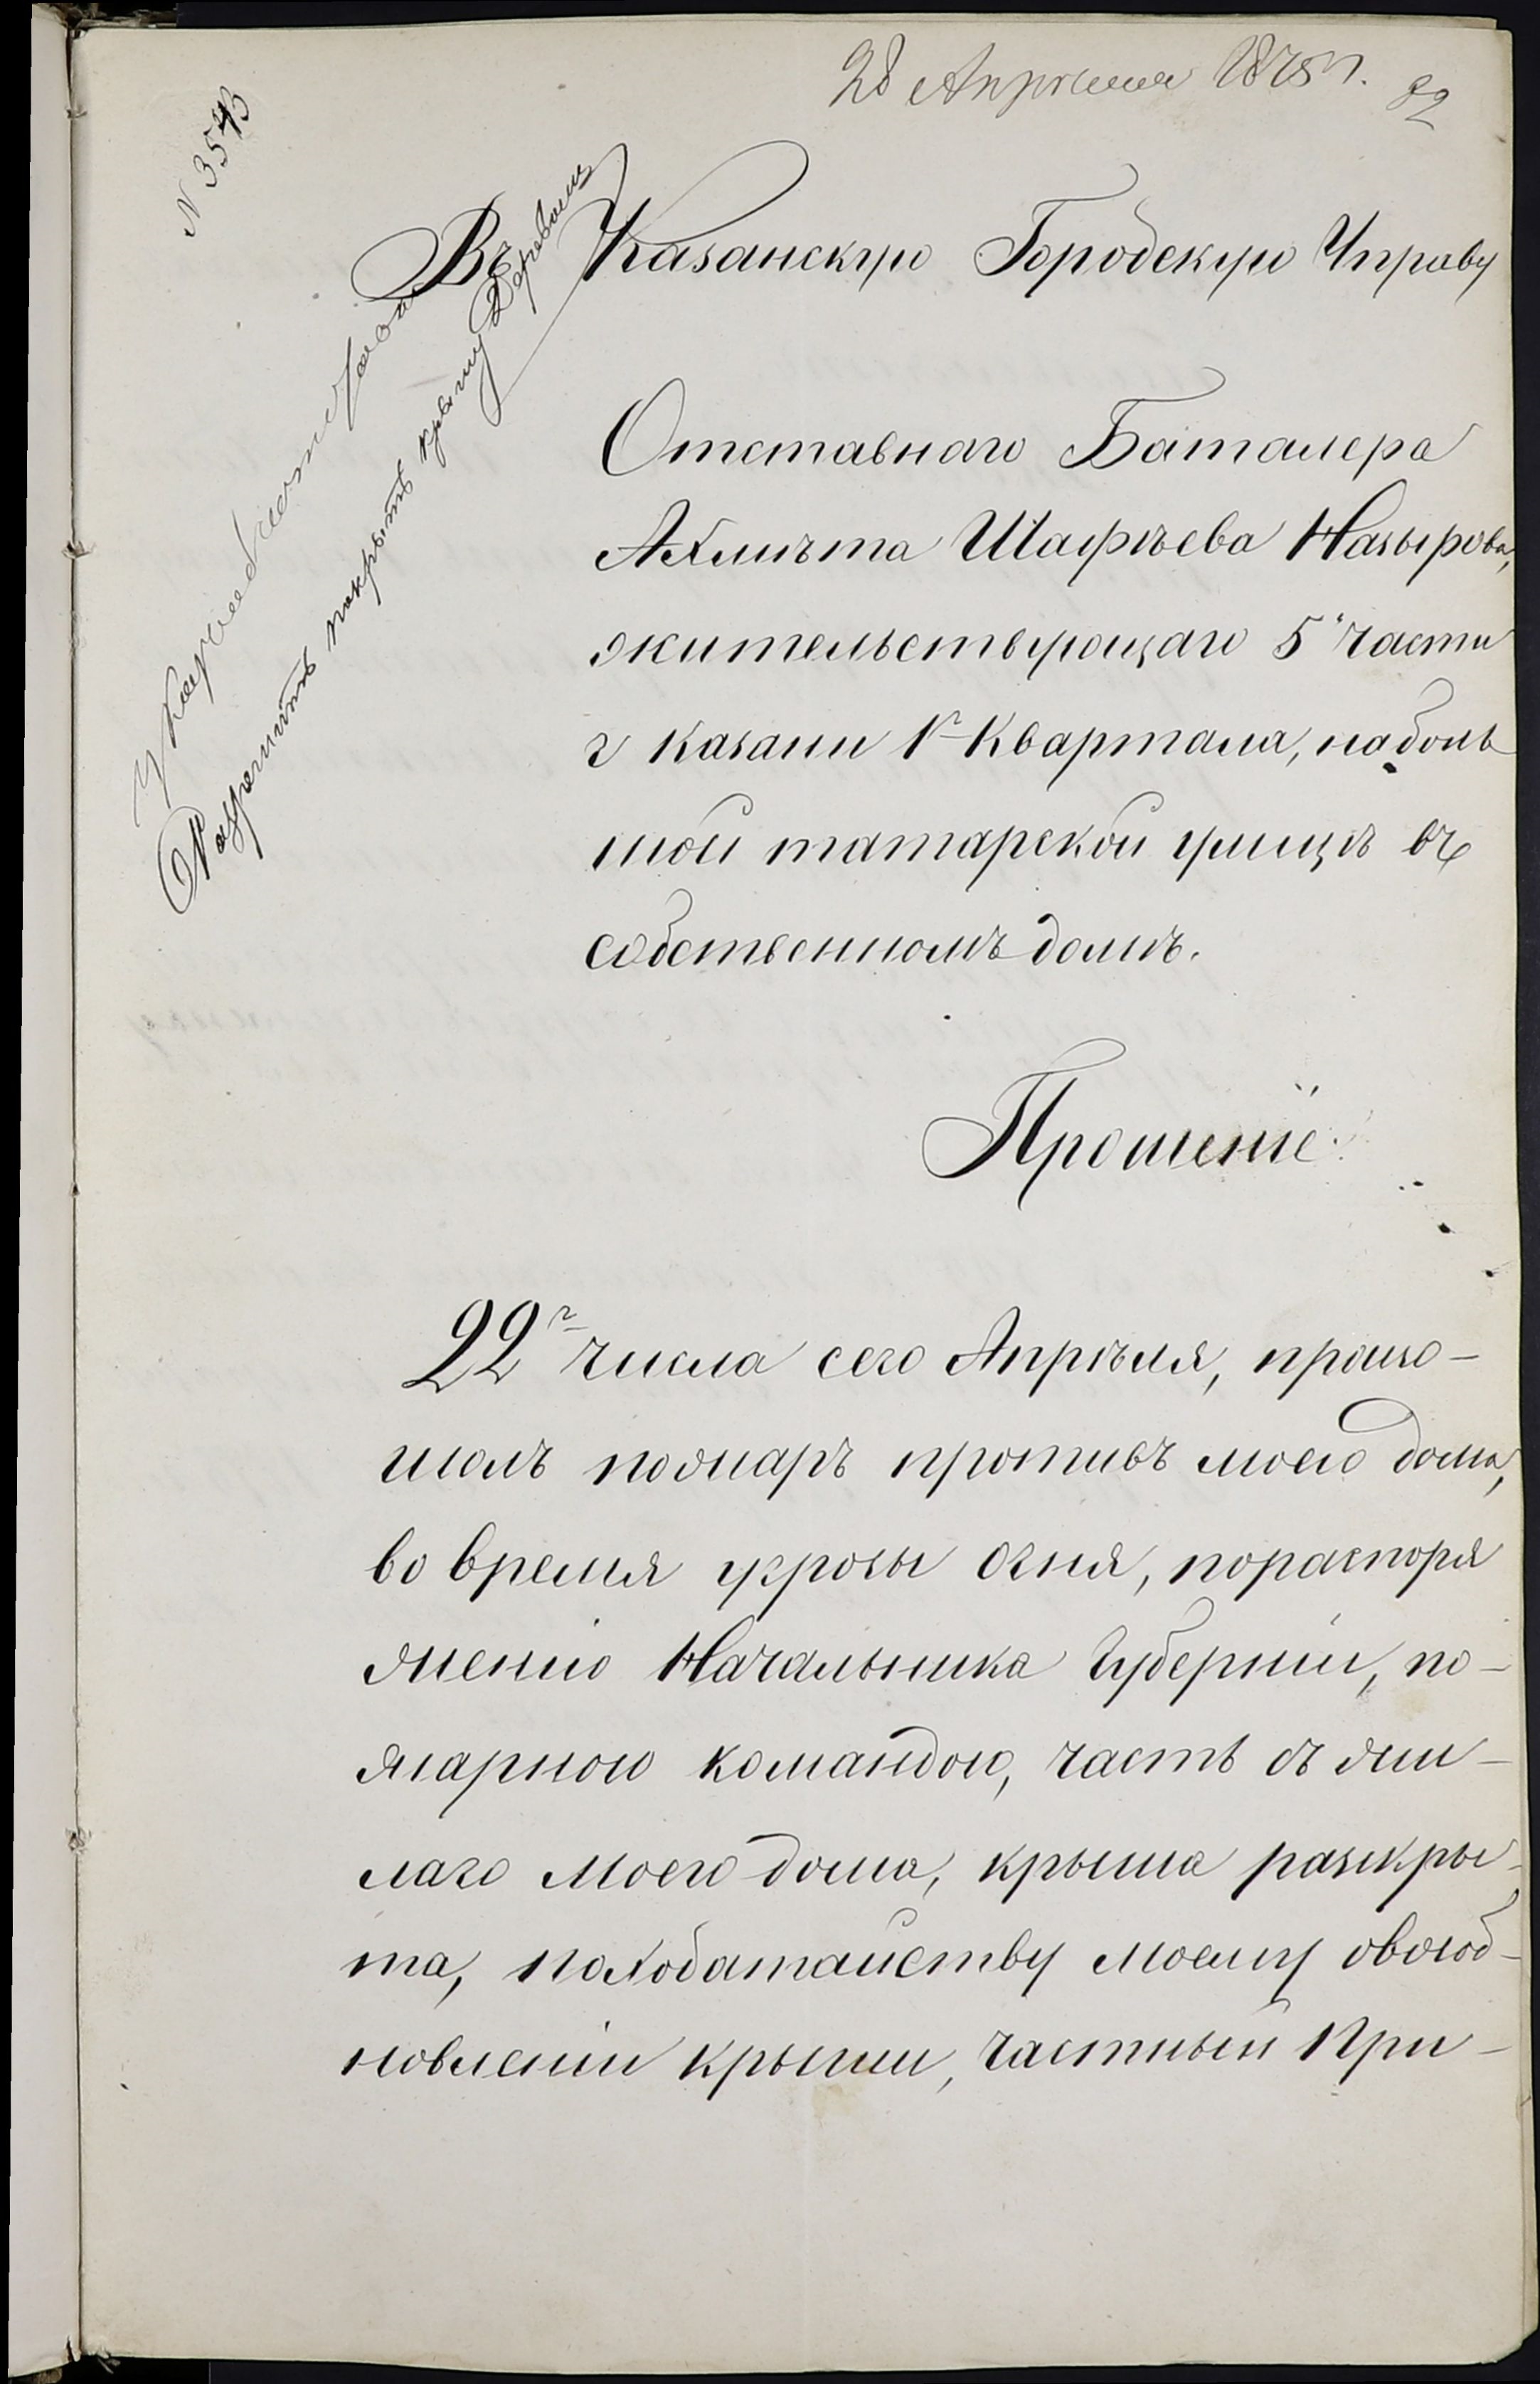 28 Апрѣля 1875 г.
82
N 3543
Въ Казанскую Городскую Управу
Разрешить покрыть крышу деревомъ
Отставнаго Баталера
Ахмѣта Шафѣева Назырова,
жительствующаго 5й части
г Казани 1г Квартала, на боль
шой татарской улицѣ въ
собственномъ домѣ.
Прошеніе.
22г числа сего Апрѣля, прοизо-
шолъ пожаръ противъ моего дома,
во время угрозы огня, по распоря
женію Начальника Губерніи, по-
жарною командою, часть съ жи-
лаго моего дома, крыша раскры-
та, по ходатайству моему овозоб-
новленіи крыши, частный При-